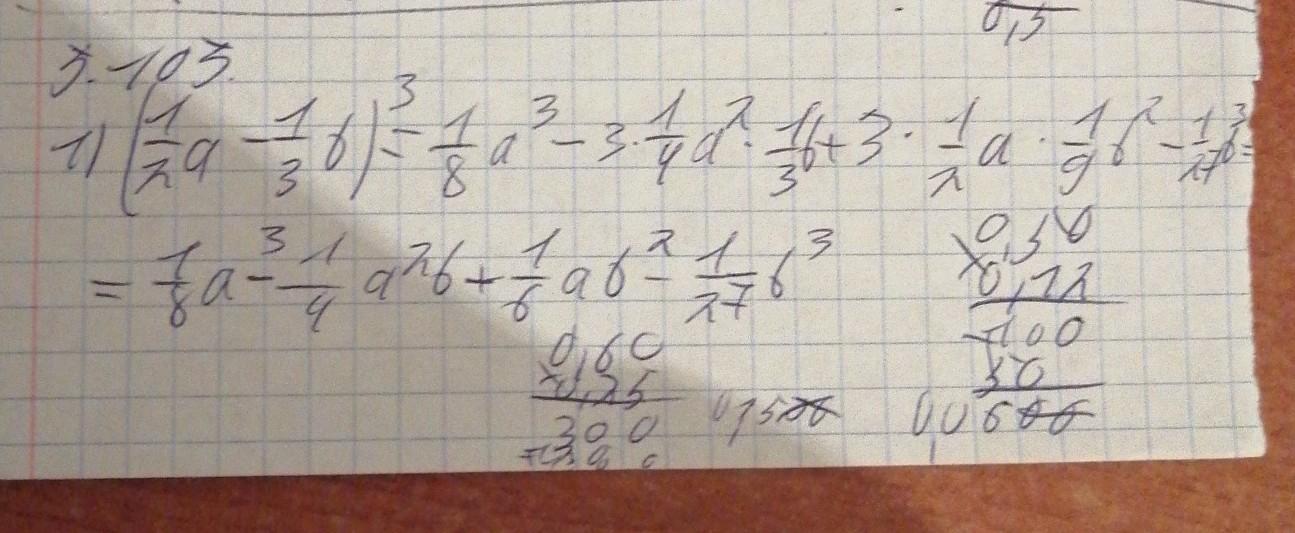 0,5
3.103.
1) (1/2 a - 1/3 b)³ = 1/8 a³ - 3 · 1/4 a² · 1/3 b + 3 · 1/2 a · 1/9 b² - 1/27 b³ =
= 1/8 a³ - 1/4 a²b + 1/6 ab² - 1/27 b³
0,50
× 0,12
+100
50
0,0600
0,60
× 0,25
300
0,1500